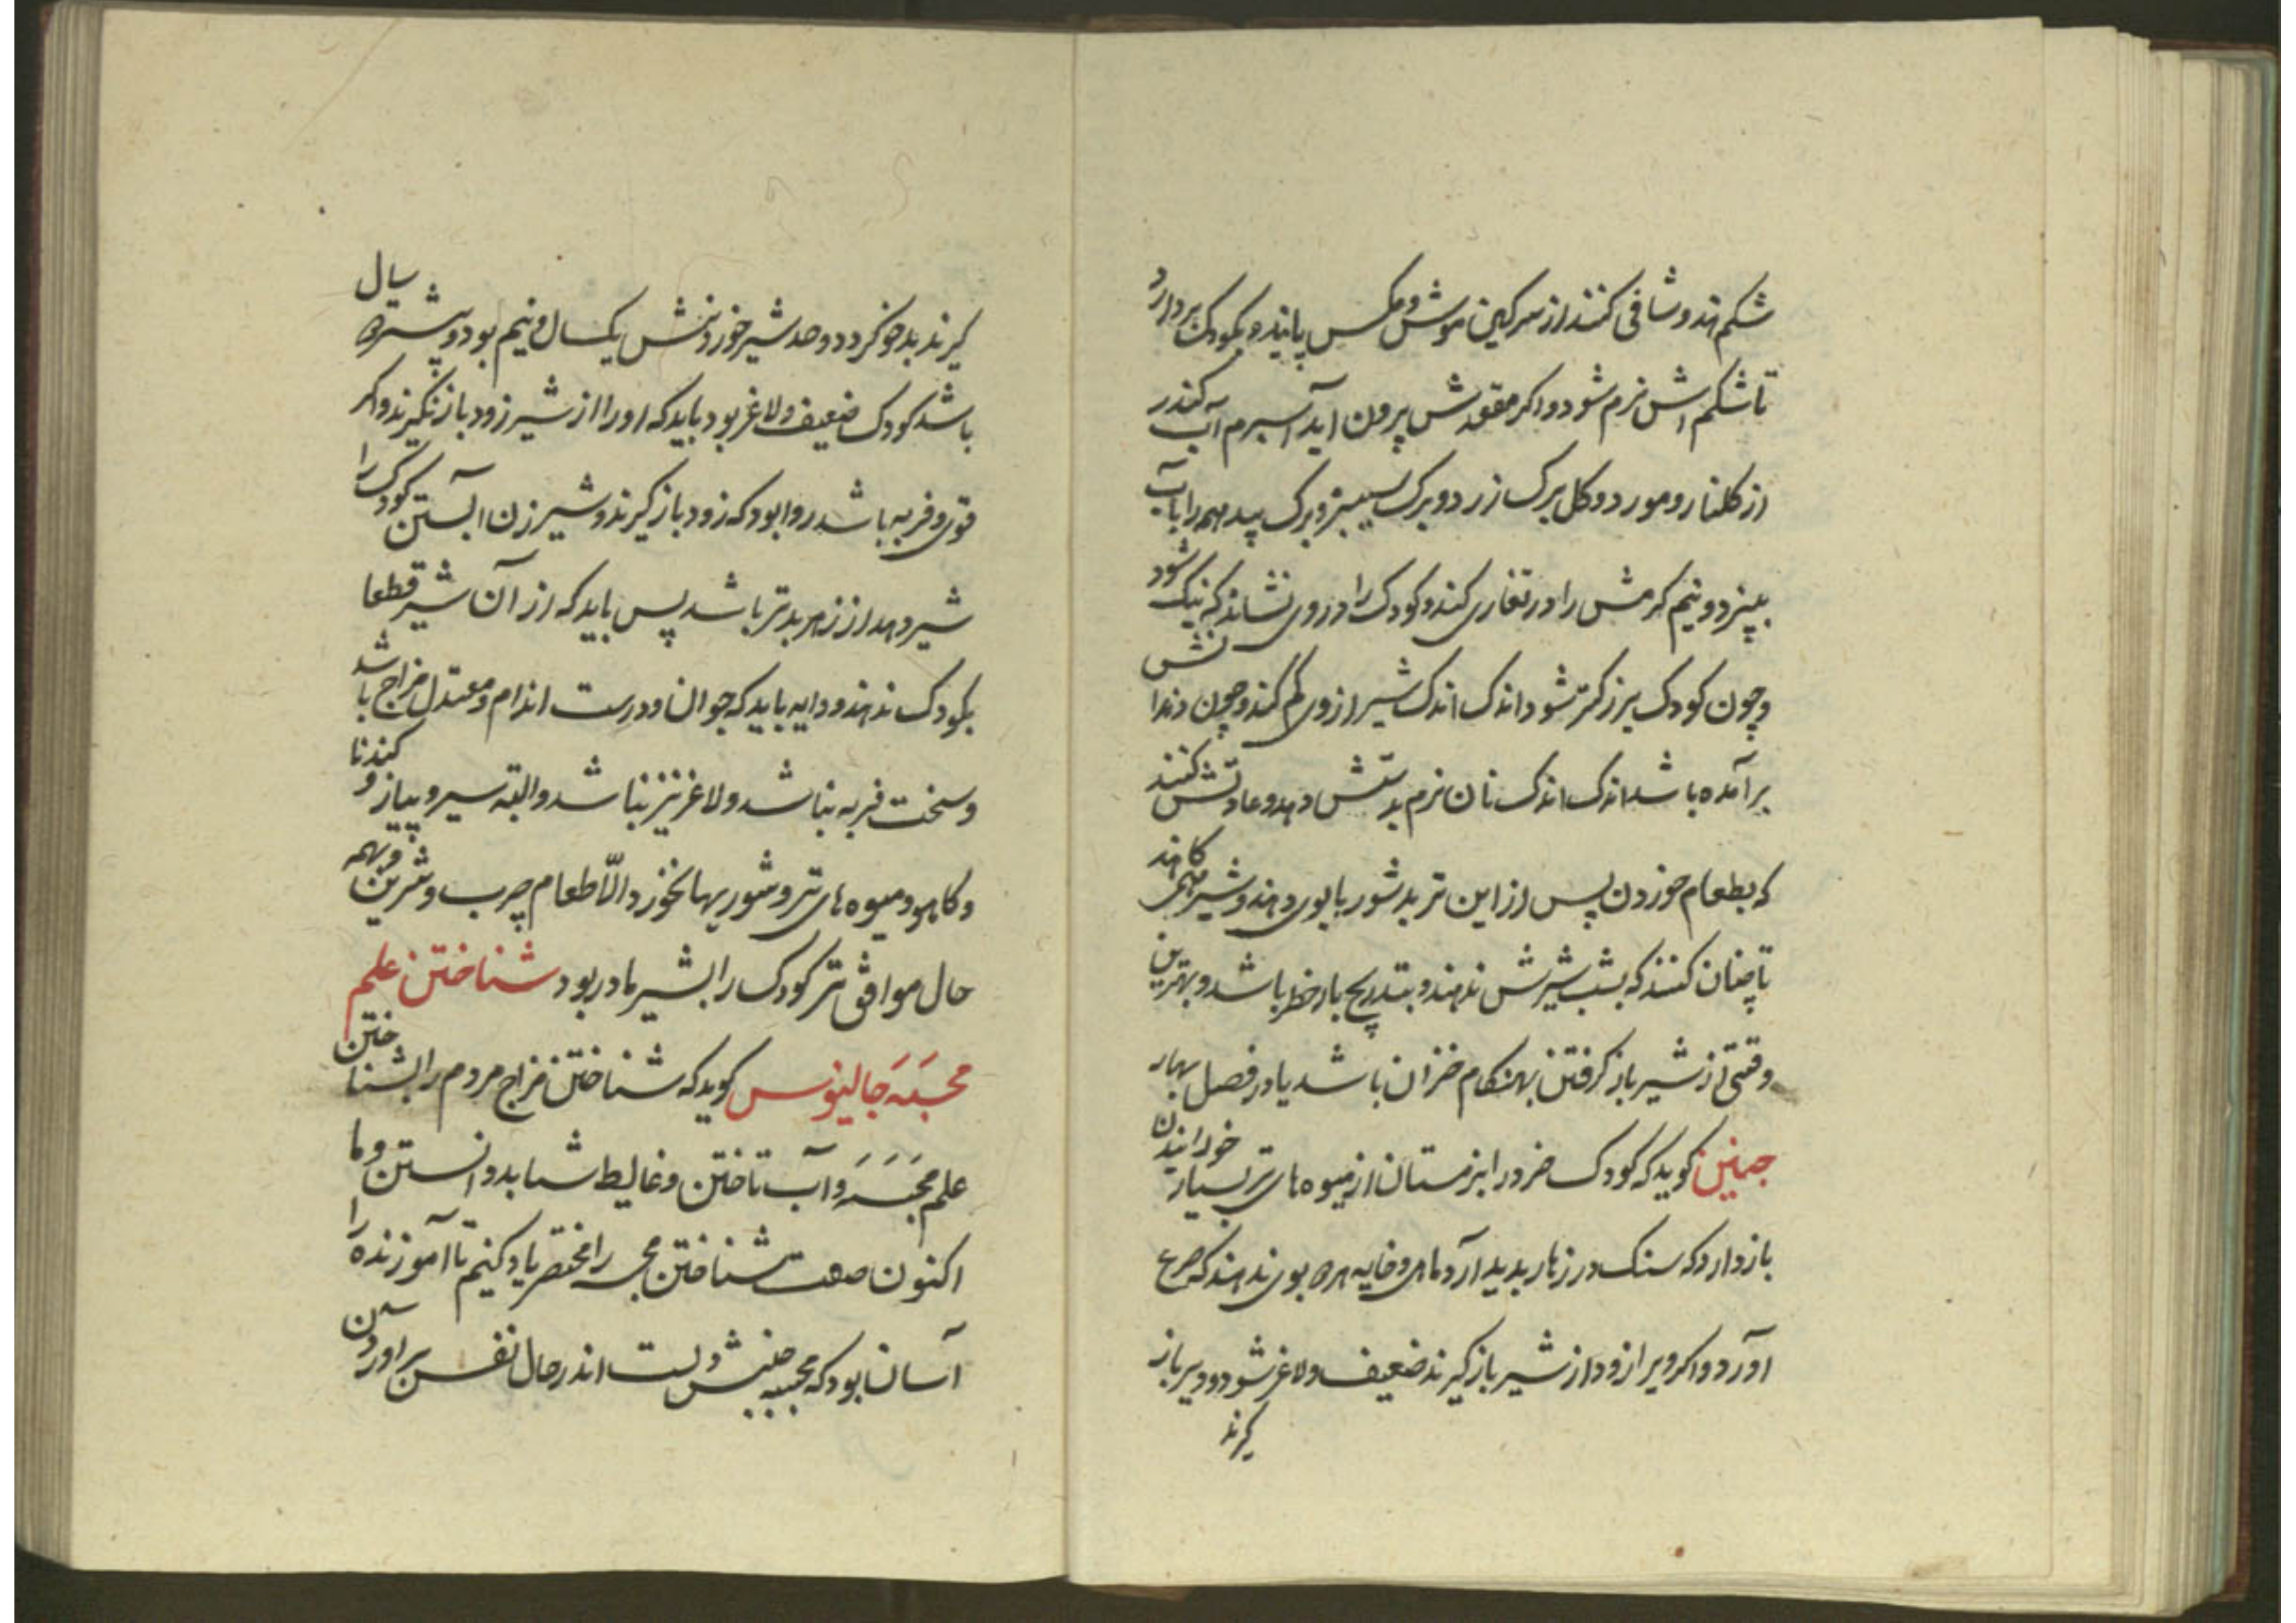 شکم نهد و شافی کنند از سرکین موش و مکس پانید و بکودک بردارد
تا شکم اش نرم شود و اکر مقعدش بیرون آید آسبرم آب کنند
از کلنار و مورد و کل برک زرد و برک سبز و برک بید همه را بآب
بپزد و نیم کرمش را در تغاری کند و کودک را در وی نشاند که نیک شود
و چون کودک بزرکتر شود اندک اندک شیر از وی کم کند و چون دندانش
برآمده باشد اندک اندک نان نرم بدستش دهد و عادتش کنند
که بطعام خوردن پس از این تر بد شوربا بوی دهند و شیر همی کاهند
تا چنان کنند که بشب شیرش ندهند و بتدریج باز خطر باشد و بهترین
وقتی از شیر باز کرفتن بهنکام خزان باشد یا در فصل بهار
چنین کوید که کودک خرد را بزمستان از میوه های تر بسیار خورانیدن
باز دارد که سنک در زهار پدید آرد ماهی و خایه هره بوی ندهند که صرع
آورد و اکر ویرا زود از شیر باز کیرند ضعیف و لاغر شود و دیر باز
کیرند
کیرند بد خو کردد و حد شیر خوردنش یکسال و نیم بود دو سال و پسترک
باشد کودک ضعیف و لاغر بود باید که او را از شیر زود باز نکیرند و اکر
قوی و فربه باشد روا بود که زود باز کیرند و شیر زن آبستن کودک را
شیر دهد از زهر بدتر باشد پس باید که از آن شیر قطعا
بکودک ندهند و دایه باید که جوان و درست اندام و معتدل مزاج باشد
و سخت فربه نباشد و لاغر نیز نباشد و البته سیر و پیاز و کندنا
و کاهو و میوه های تر و شوریها نخورد الّا طعام چرب و شیرین و بهمه
حال موافق تر کودک را شیر مادر بود شناختن علم
مجسَه جالینوس کوید که شناختن مزاج مردم را بشناختن
علم مجَسَه و آب تاختن و غالیط شاید دانستن و ما
اکنون صفت شناختن مجسه را مختصر یاد کنیم تا آموزنده را
آسان بود که مجسه جنبش دلست اندر حال نفس برآوردن